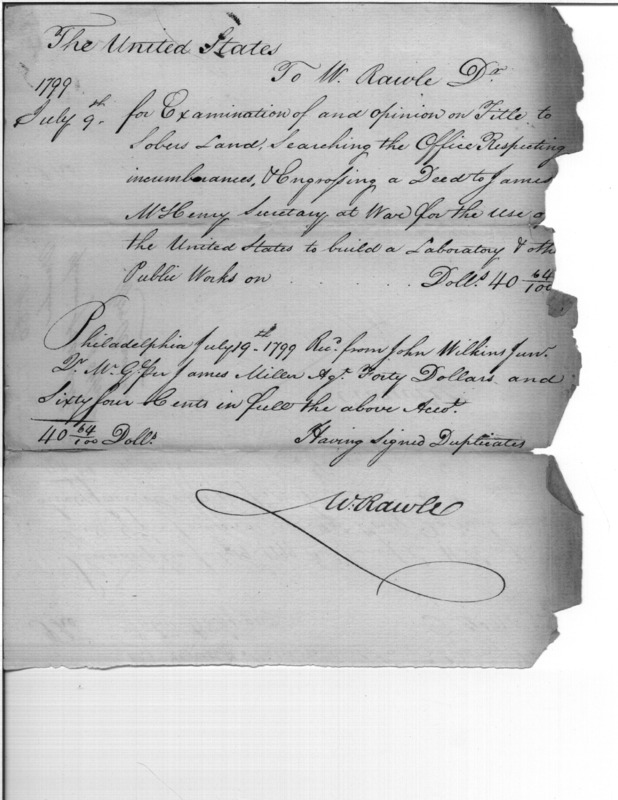 The United States
To W. Rawle Dr
1799
July 9th for Examination of and opinion on Title to
Sobers Land, Searching the Office Respecting
incumberances, & Engrossing a Deed to James
McHenry Secretary at War for the Use o
the United States to build a Laboratory & oth
Public Works on . . . . Dolls 40 64/100
Philadelphia July 19th 1799 Recd. from John Wilkins Junr.
Qr. Mr. Gl per James Miller Agt. Forty Dollars and
Sixty four Cents in full the above Accot.
40 64/100 Dolls Having Signed Duplicates
W. Rawle